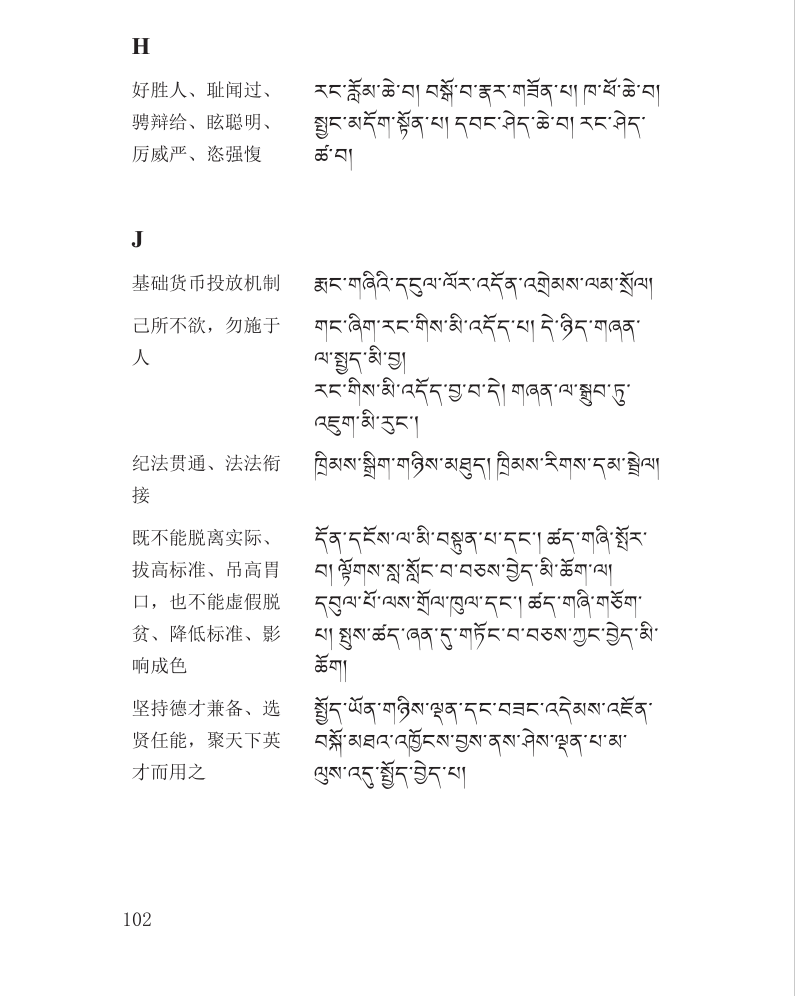 H
好胜人、耻闻过、
骋辩给、眩聪明、
厉威严、恣强愎
རང་རློམ་ཆེ་བ། བསྒོ་བ་རྣར་གཟོན་པ། ཁ་ཕོ་ཆེ་བ།
སྤྱང་མདོག་སྟོན་པ། དབང་ཤེད་ཆེ་བ། རང་ཤེད་
ཚ་བ།
J
基础货币投放机制
རྨང་གཞིའི་དངུལ་ལོར་འདོན་འགྲེམས་ལམ་སྲོལ།
己所不欲，勿施于
人
གང་ཞིག་རང་གིས་མི་འདོད་པ། དེ་ཉིད་གཞན་
ལ་སྤྱད་མི་བྱ།
རང་གིས་མི་འདོད་བྱ་བ་དེ། གཞན་ལ་སྒྲུབ་ཏུ་
འཇུག་མི་རུང་།
纪法贯通、法法衔
接
ཁྲིམས་སྒྲིག་གཉིས་མཐུད། ཁྲིམས་རིགས་དམ་སྦྲེལ།
既不能脱离实际、
拔高标准、吊高胃
口，也不能虚假脱
贫、降低标准、影
响成色
དོན་དངོས་ལ་མི་བསྟུན་པ་དང་། ཚད་གཞི་སྤོར་
བ། ལྟོགས་སླ་སློང་བ་བཅས་བྱེད་མི་ཆོག་ལ།
དབུལ་པོ་ལས་གྲོལ་ཁུལ་དང་། ཚད་གཞི་གཅོག་
པ། སྤུས་ཚད་ཞན་དུ་གཏོང་བ་བཅས་ཀྱང་བྱེད་མི་
ཆོག།
坚持德才兼备、选
贤任能，聚天下英
才而用之
སྤྱོད་ཡོན་གཉིས་ལྡན་དང་བཟང་འདེམས་འཇོན་
བསྐོ་མཐའ་འཁྱོངས་བྱས་ནས་ཤེས་ལྡན་པ་མ་
ལུས་འདུ་སྤྱོད་བྱེད་པ།
102